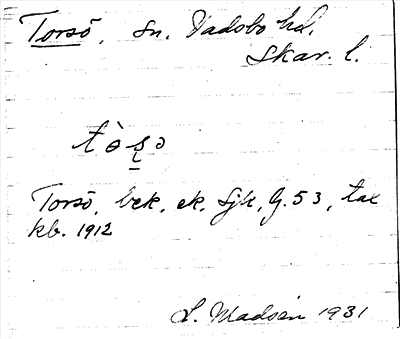 Torsö, sn. Vadsbo hd,
Skar. l.
Torsö, bek. ek. Sjk, G. 53, tax
kb. 1912
L. Madsén 1931